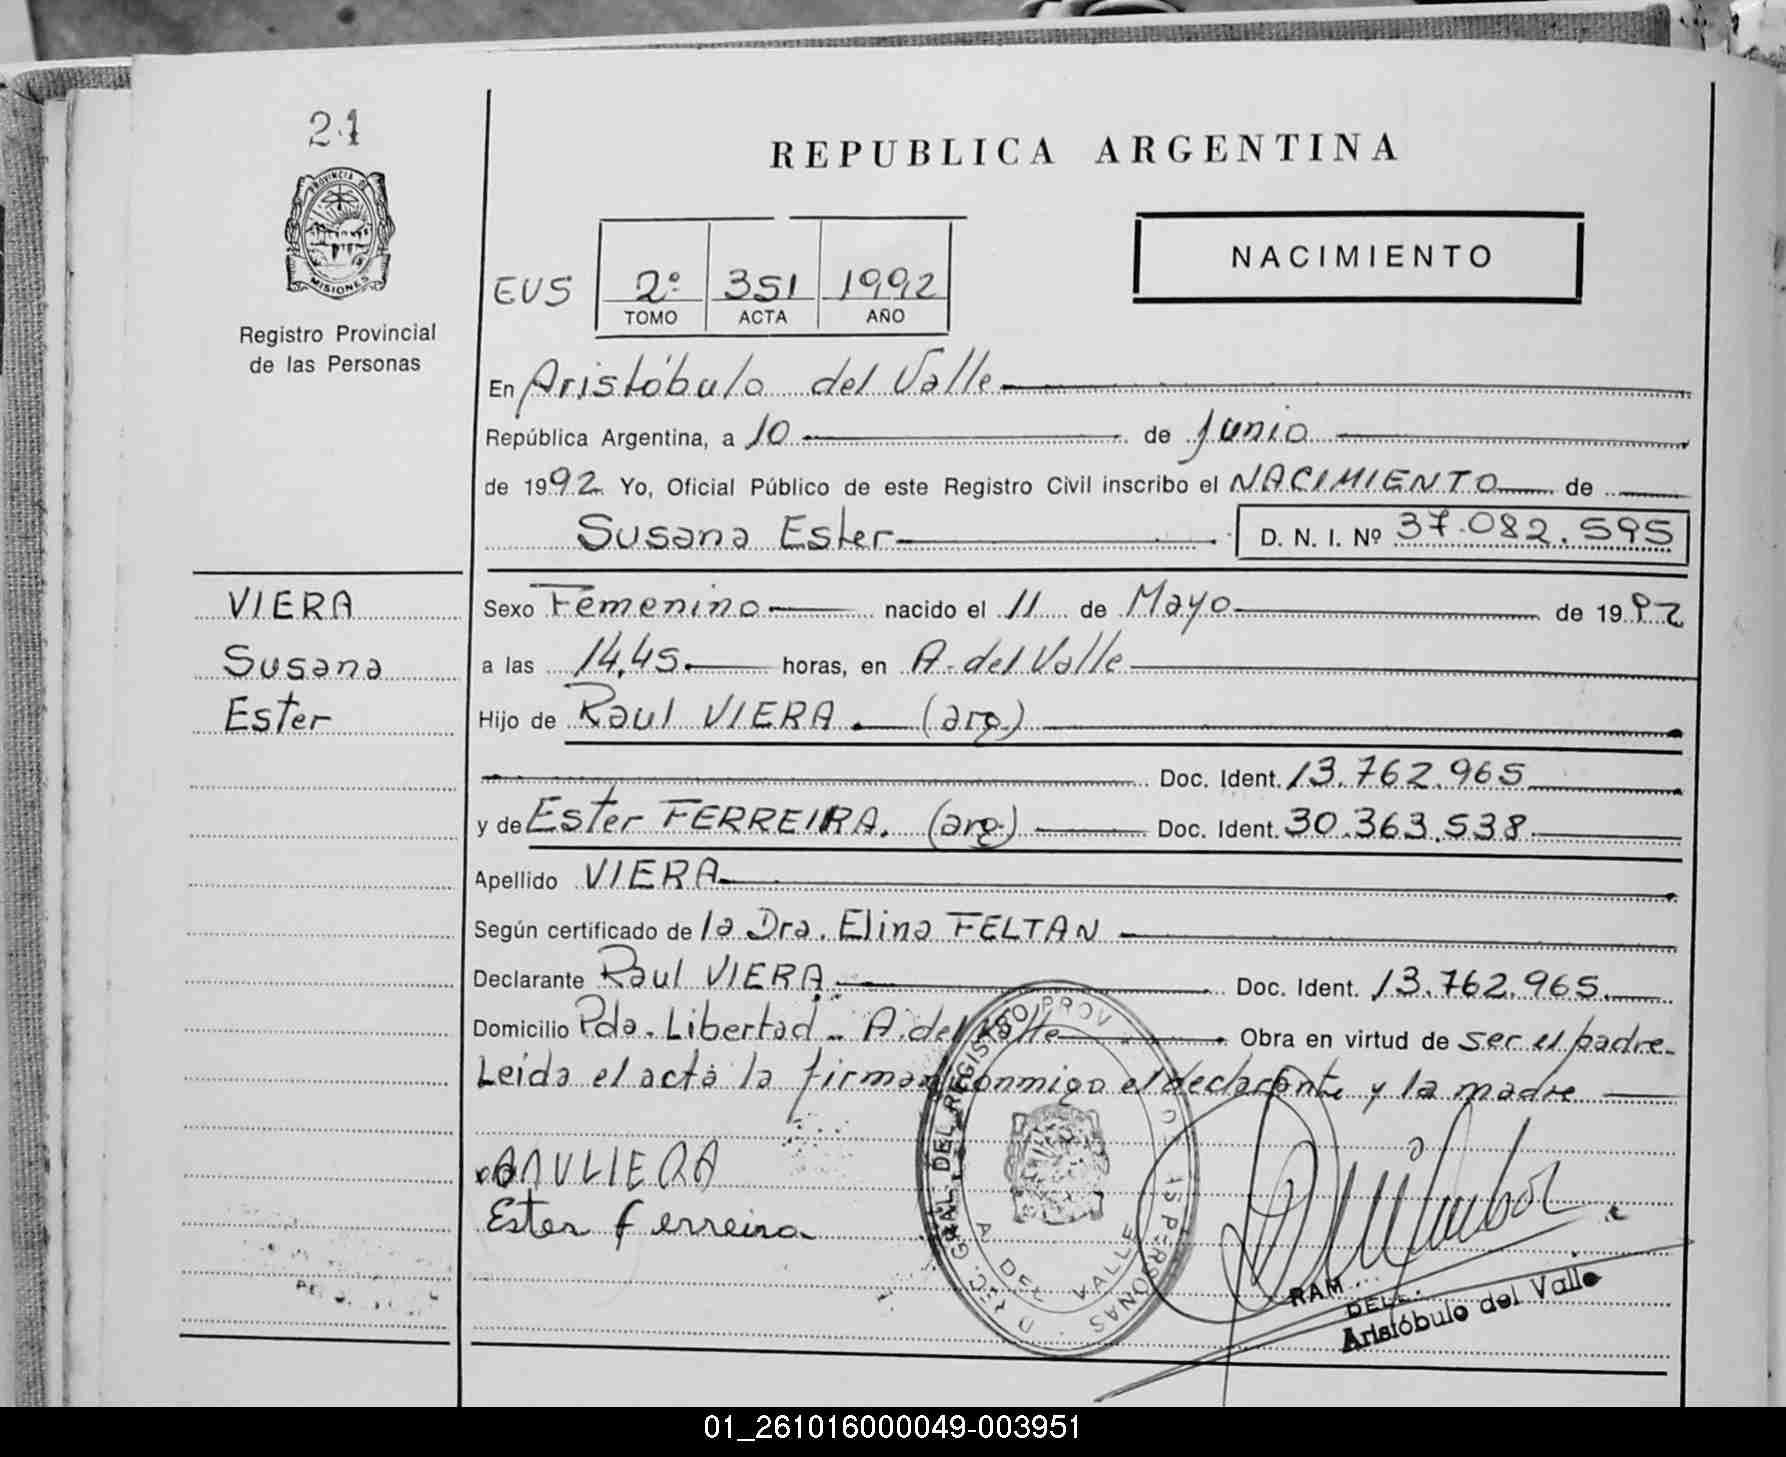 24
PROVINCIA DE
MISIONES
Registro Provincial
de las Personas
REPUBLICA ARGENTINA
NACIMIENTO
EUS 2º 351 1992
TOMO ACTA AÑO
En Aristóbulo del Valle
República Argentina, a 10 de Junio
de 1992 Yo, Oficial Público de este Registro Civil inscribo el NACIMIENTO de
Susana Ester D. N. I. Nº 37.082.595
VIERA
Susana
Ester
Sexo Femenino nacido el 11 de Mayo de 1992
a las 14,45 horas, en A. del Valle
Hijo de Raul VIERA. (arg.)
Doc. Ident. 13.762.965
y de Ester FERREIRA. (arg.) Doc. Ident. 30.363.538
Apellido VIERA
Según certificado de la Dra. Elina FELTAN
Declarante Raul VIERA Doc. Ident. 13.762.965
Domicilio Pda. Libertad - A. del Valle Obra en virtud de ser el padre.
Leida el acta la firman conmigo el declarante y la madre
Ester Ferreira
DEL REGISTRO PROV
PERSONAS
A DEL VALLE
RAM
DELE.
Aristóbulo del Valle
01_261016000049-003951